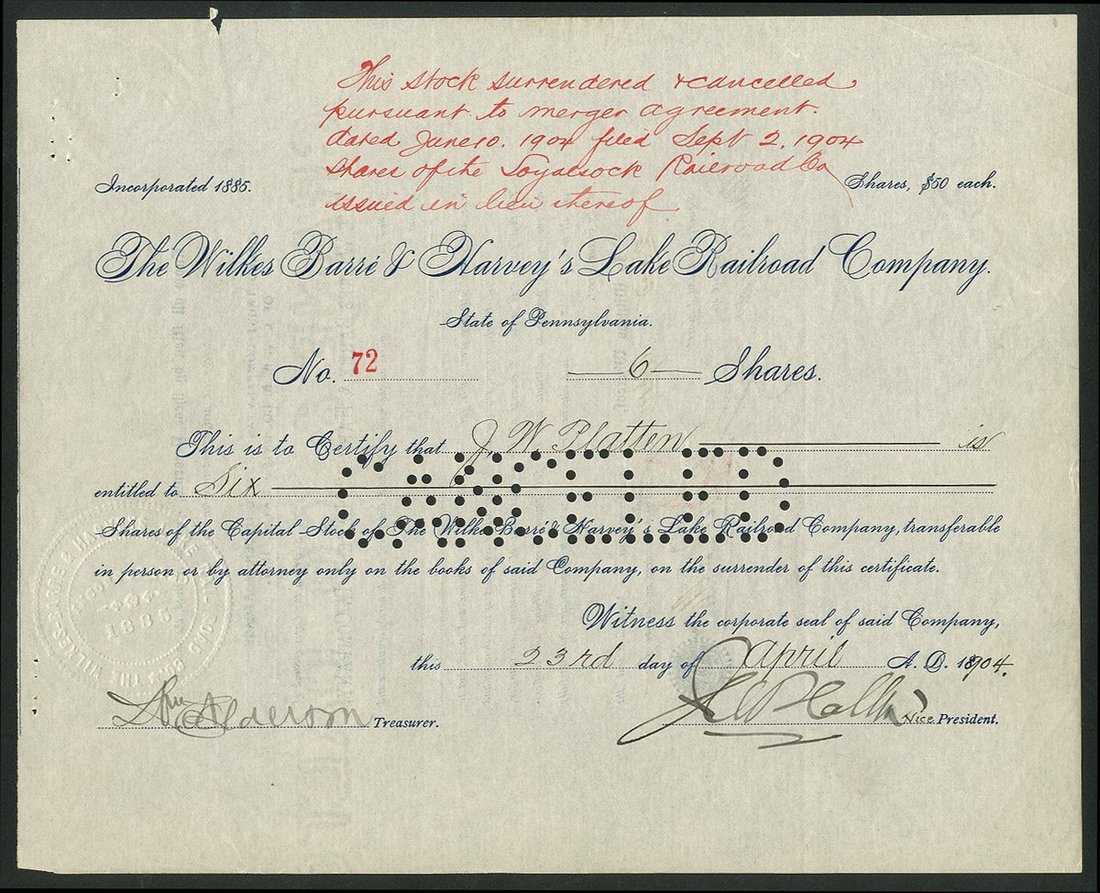 This stock surrendered & cancelled
pursuant to merger agreement.
dated June 10. 1904 filed Sept 2, 1904
Shares of the Loyalsock Railroad Co
issued in lieu thereof
Incorporated 1885.
Shares, $50 each.
The Wilkes Barré & Harvey's Lake Railroad Company.
State of Pennsylvania.
No. 72 6 Shares.
This is to Certify that J. W. Platten is
entitled to Six
CANCELLED
Shares of the Capital Stock of The Wilkes Barré & Harvey's Lake Railroad Company, transferable
in person or by attorney only on the books of said Company, on the surrender of this certificate.
Witness the corporate seal of said Company,
this 23rd day of April A.D. 1904.
Treasurer.
Vice President.
THE WILKES-BARRE &
1885